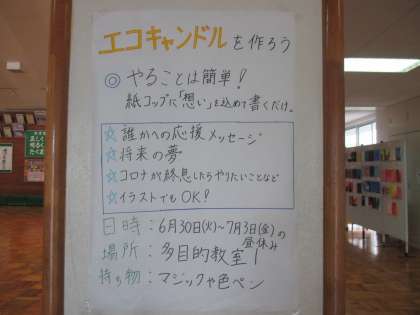 エコキャンドルを作ろう
◎やることは簡単!
紙コップに「想い」を込めて書くだけ。
☆誰かへの応援メッセージ
☆将来の夢
☆コロナが終息したらやりたいことなど
☆イラストでもOK!
日時:6月30日(火)~7月3日(金)の
昼休み
場所:多目的教室1
持ち物:マジックや色ペン
正しく
明るく
たくま